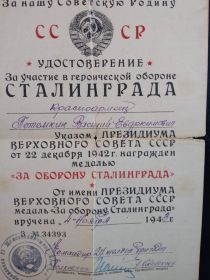 За нашу Советскую Родину
СССР
УДОСТОВЕРЕНИЕ
За участие в героической обороне
СТАЛИНГРАДА
Красноармеец
Потемкин Василий Евдокимович
Указом ПРЕЗИДИУМА
ВЕРХОВНОГО СОВЕТА СССР
от 22 декабря 1942 г. награжден
медалью
«ЗА ОБОРОНУ СТАЛИНГРАДА»
От имени ПРЕЗИДИУМА
ВЕРХОВНОГО СОВЕТА СССР
медаль «За оборону Сталинграда»
вручена ноября 194
В № 34393